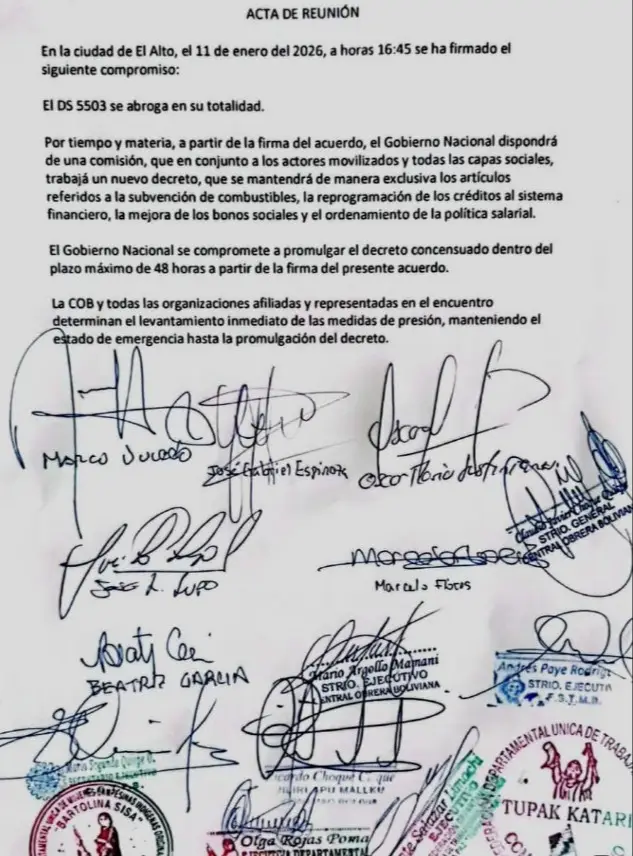 ACTA DE REUNIÓN
En la ciudad de El Alto, el 11 de enero del 2026, a horas 16:45 se ha firmado el
siguiente compromiso:
El DS 5503 se abroga en su totalidad.
Por tiempo y materia, a partir de la firma del acuerdo, el Gobierno Nacional dispondrá
de una comisión, que en conjunto a los actores movilizados y todas las capas sociales,
trabajá un nuevo decreto, que se mantendrá de manera exclusiva los artículos
referidos a la subvención de combustibles, la reprogramación de los créditos al sistema
financiero, la mejora de los bonos sociales y el ordenamiento de la política salarial.
El Gobierno Nacional se compromete a promulgar el decreto concensuado dentro del
plazo máximo de 48 horas a partir de la firma del presente acuerdo.
La COB y todas las organizaciones afiliadas y representadas en el encuentro
determinan el levantamiento inmediato de las medidas de presión, manteniendo el
estado de emergencia hasta la promulgación del decreto.
MARCO
José Gabriel Espinoza
Oscar Mario
STRIO. GENERAL
CENTRAL OBRERA BOLIVIANA
José L. LUPO
Marcelo Flores
BEATRIZ GARCIA
Mario Argollo Mamani
STRIO. EJECUTIVO
CENTRAL OBRERA BOLIVIANA
Andrés Paye Rodrígu
STRIO. EJECUTI
F.S.T.M.B.
Choque
MALLKU
BARTOLINA SISA
Olga Rojas Poma
DEPARTAMENTAL
Salazar
DEPARTAMENTAL UNICA DE TRABAJ
TUPAK KATARI